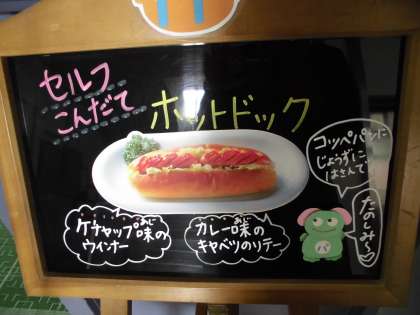 セルフ
こんだて
ホットドック
コッペパンに
じょうずに
はさんで
たのしみ〜
ケチャップ味の
あじ
ウインナー
カレー味の
あじ
キャベツのソテー
パ